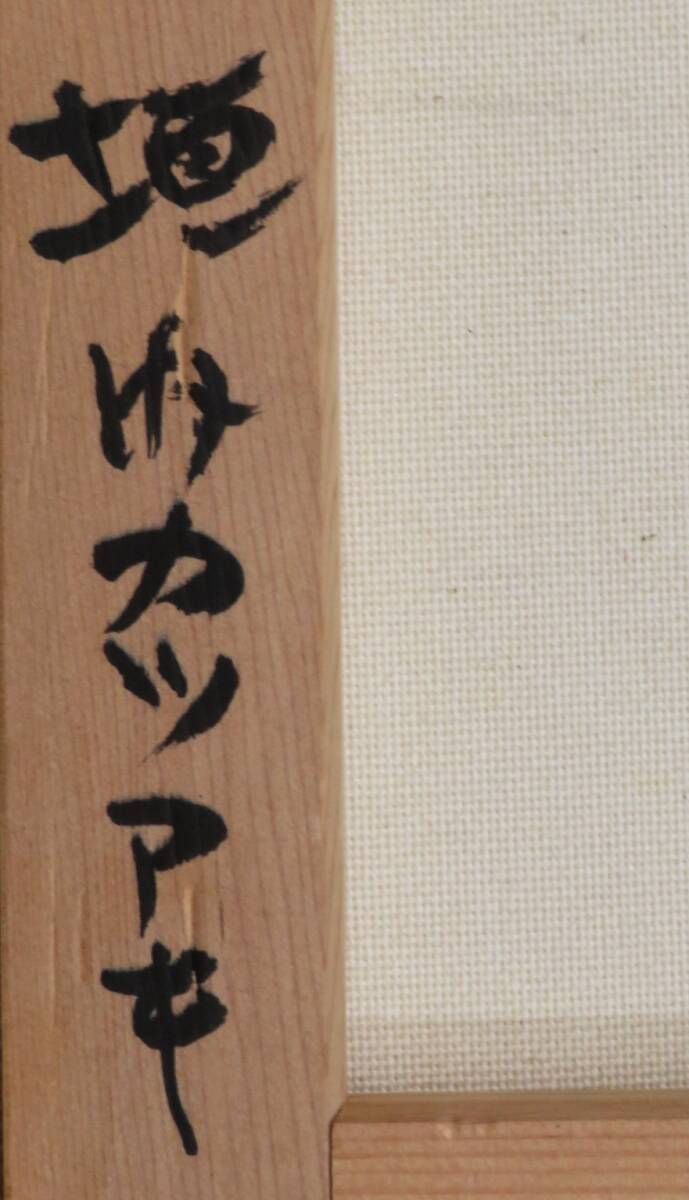 垣内カツアキ